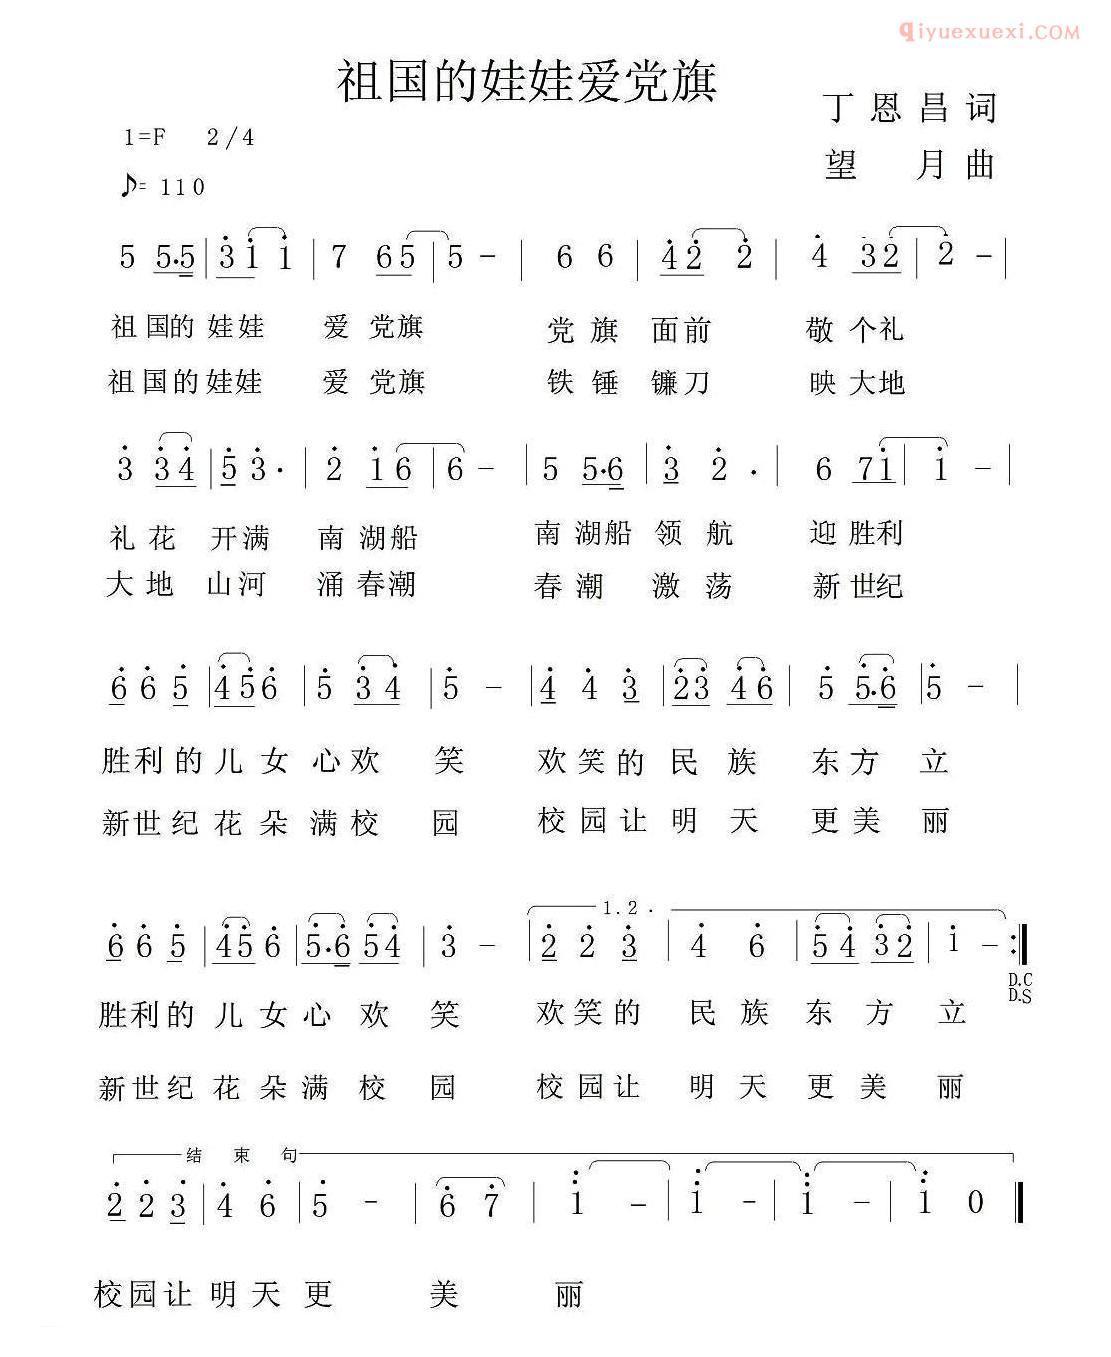 qiyuexuexi.COM
祖国的娃娃爱党旗
丁恩昌词
1=F 2/4
望 月曲
♪= 110
5 5.5 | 3 1 1 | 7 6 5 | 5 - | 6 6 | 4 2 2 | 4 3 2 | 2 - |
祖国的娃娃 爱党旗 党旗面前 敬个礼
祖国的娃娃 爱党旗 铁锤镰刀 映大地
3 3 4 | 5 3. | 2 1 6 | 6 - | 5 5.6 | 3 2. | 6 7 1 | 1 - |
礼花 开满 南湖船 南湖船领航 迎胜利
大地 山河 涌春潮 春潮 激荡 新世纪
6 6 5 | 4 5 6 | 5 3 4 | 5 - | 4 4 3 | 2 3 4 6 | 5 5.6 | 5 - |
胜利的儿女心欢 笑 欢笑的民族 东方立
新世纪花朵满校 园 校园让明天 更美丽
1.2.
6 6 5 | 4 5 6 | 5.6 5 4 | 3 - | 2 2 3 | 4 6 | 5 4 3 2 | 1 - :|
D.C
D.S
胜利的儿女心欢 笑 欢笑的 民族东方立
新世纪花朵满校 园 校园让 明天更美丽
结束句
2 2 3 | 4 6 | 5 - | 6 7 | 1 - | 1 - | 1 - | 1 0 ||
校园让明天更 美 丽